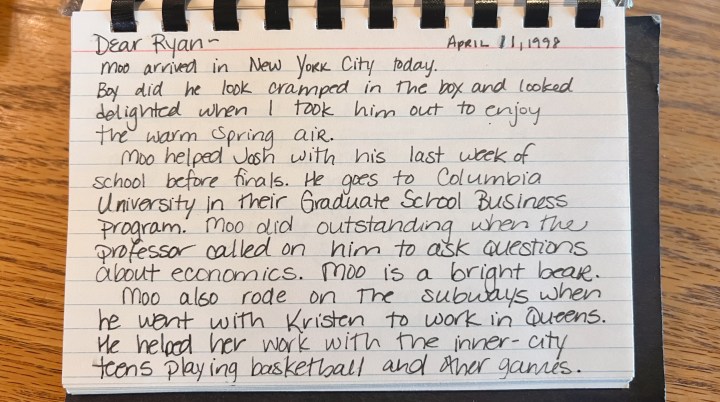 Dear Ryan- APRIL 11, 1998
Moo arrived in New York City today.
Boy did he look cramped in the box and looked
delighted when I took him out to enjoy
the warm spring air.
Moo helped Josh with his last week of
school before finals. He goes to Columbia
University in their Graduate School Business
program. Moo did outstanding when the
professor called on him to ask questions
about economics. Moo is a bright bear.
Moo also rode on the subways when
he went with Kristen to work in Queens.
He helped her work with the inner-city
teens playing basketball and other games.